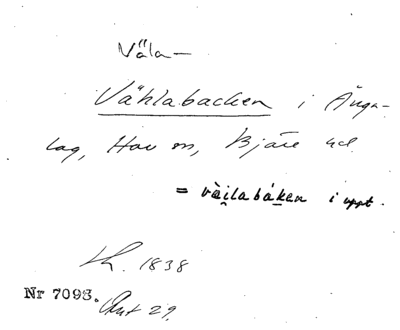 Väla-
Vählabacken i Änga-
lag, Hov sn, Bjäre hd.
= väi̯labáken i uppt.
Lh. 1838
Nr 7093. Ant 29.